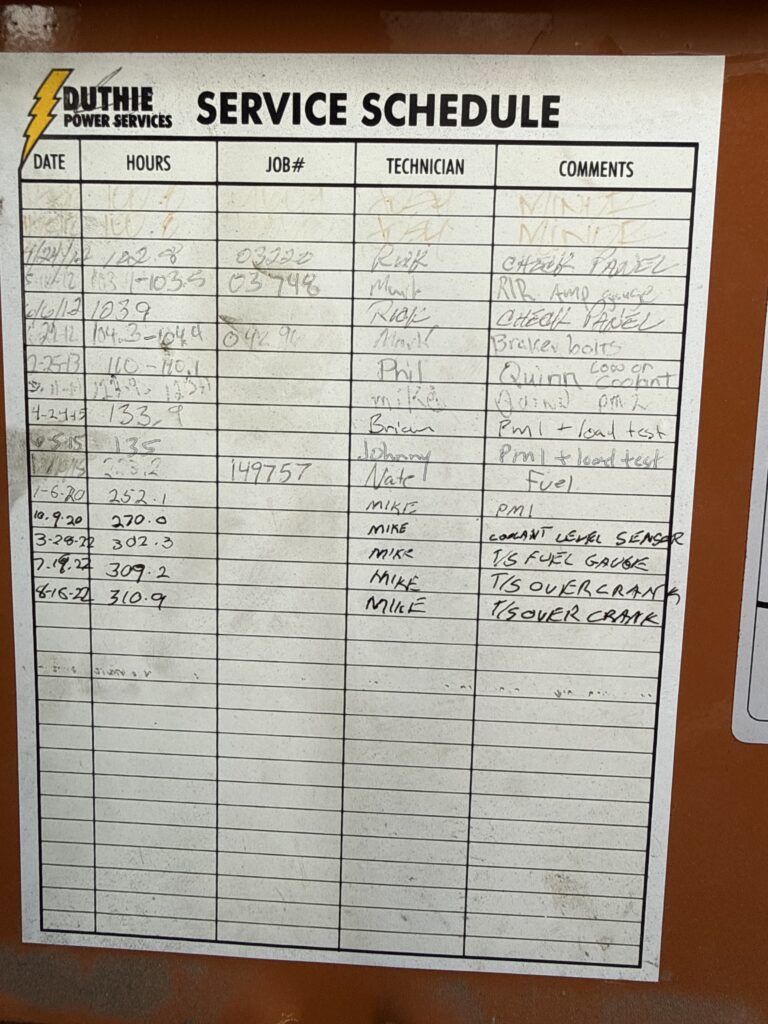 DUTHIE
POWER SERVICES
SERVICE SCHEDULE
DATE HOURS JOB# TECHNICIAN COMMENTS
102.8 03220 Rick CHECK PANEL
-103.5 03748 Mark R/R Amp gauge
6/6/12 1039 Rick CHECK PANEL
104.3-104.9 Mark Braker bolts
2-25-13 110-110.1 Phil Quinn Low on Coolant
mike Quinn pm2
4-24-15 133.9 Brian Pm1 + load test
135 Johnny Pm1 + load test
149757 Nate Fuel
1-6-20 252.1 MIKE PM1
10.9.20 270.0 MIKE COOLANT LEVEL SENSOR
3-28-22 302.3 MIKE T/S FUEL GAUGE
7.19.22 309.2 MIKE T/S OVERCRANK
8-16-22 310.9 MIKE T/S OVER CRANK